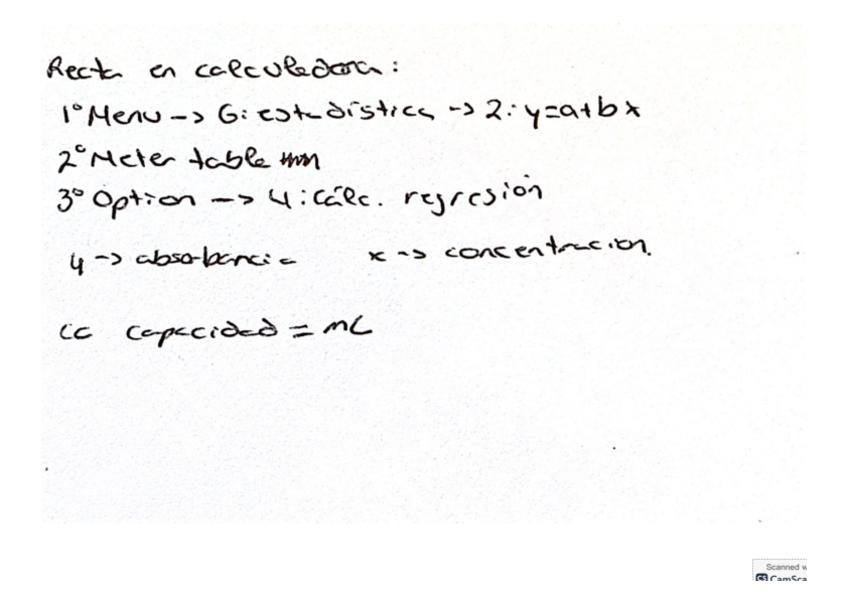 Recta en calculadora:
1º Menu -> 6: estadística -> 2: y=a+bx
2º Meter tabla
3º Option -> 4: cálc. regresión
y -> absorbancia x -> concentracion.
cc capacidad = mL
Scanned w
CS CamSca